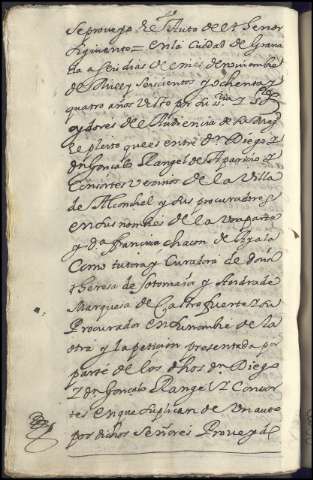 se proveyo el Auto del thenor
siguiente = en la ciudad de Grana
da a seis dias de el mes de noviembre
de mill y seiscientos y ochenta y
quatro años visto por los ss.
oydores de el Audiencia de su Magd
el pleito que es entre dn Diego y
dn Gonzalo Rangel de Aparicio y
Consortes vecinos de la Villa
de Almendral y sus procuradores
en sus nombres de la una parte
y Da francisca chacon de
Como tutora y Curadora de doña
theresa de Sotomaior y Andrade
Marquesa de Castrofuerte y su
Procurador en su nombre de la
otra y la peticion presentada por
parte de los dhos dn Diego
y dn Gonzalo Rangel y Consor
tes en que suplican de un auto
por dichos señores Proveydo